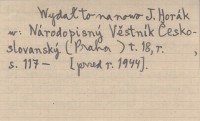 Wydał to na nowo J. Horák
w: Národopisný Věstník Česko-
slovanský (Praha) t. 18, r.    ,
s. 117 –    [przed r. 1944].